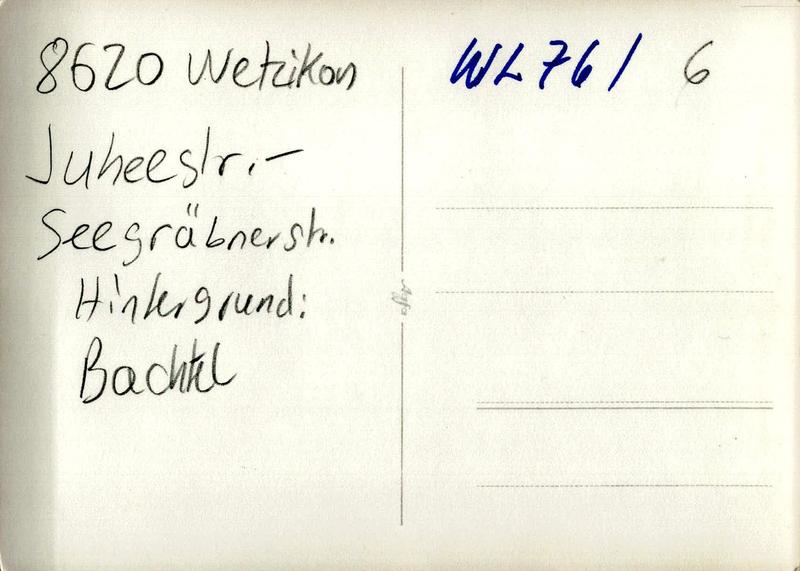 8620 Wetzikon
Juheestr.-
Seegräbnerstr.
Hintergrund:
Bachtel
WL 76 / 6
Agfa